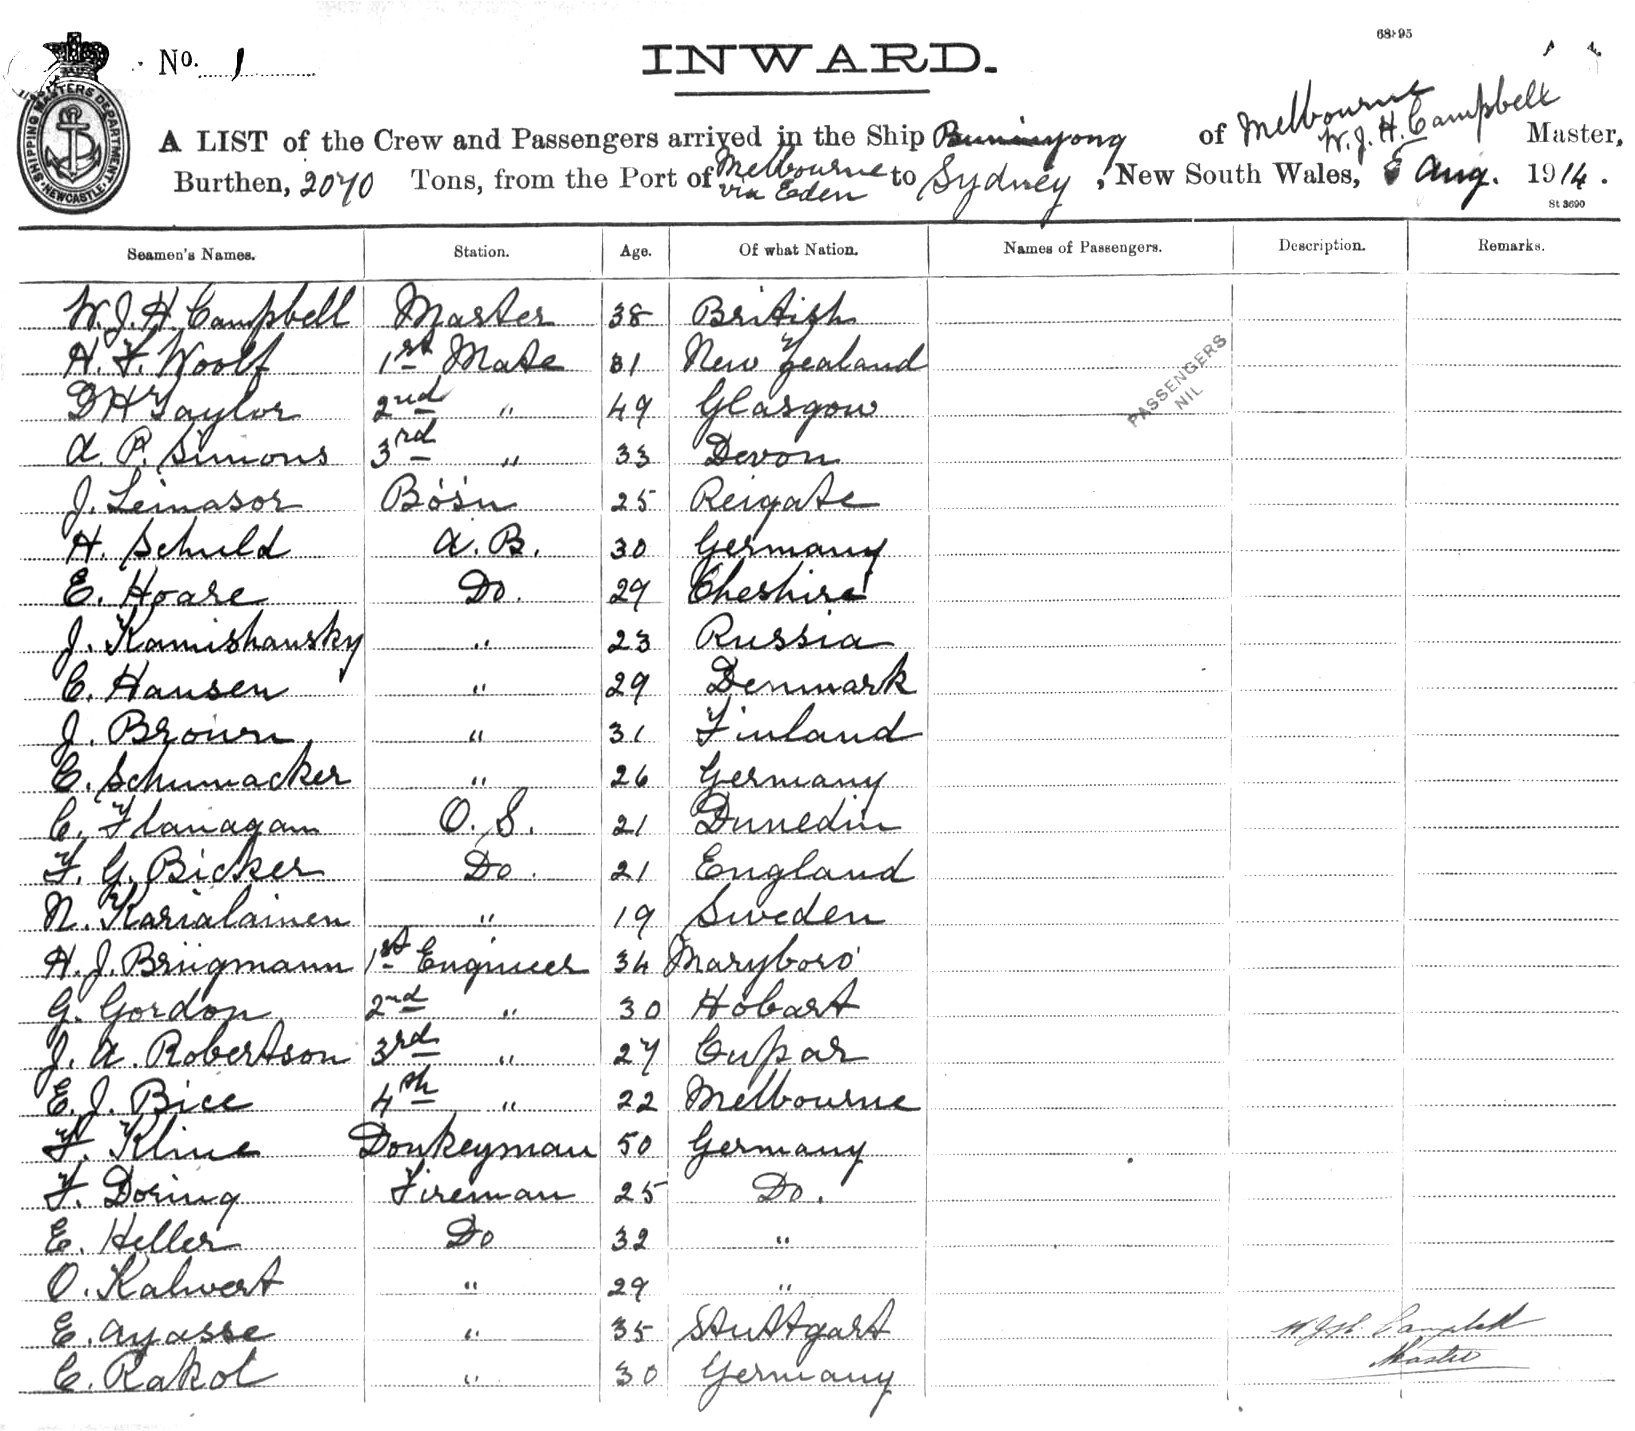 68395
No. 1
INWARD.
SHIPPING MASTERS DEPARTMENT NEWCASTLE
A LIST of the Crew and Passengers arrived in the Ship Buninyong of Melbourne W. J. H. Campbell Master,
Burthen, 2070 Tons, from the Port of Melbourne via Eden to Sydney, New South Wales, 5 Aug. 1914.
St 3690
Seamen's Names. Station. Age. Of what Nation. Names of Passengers. Description. Remarks.
W. J. H. Campbell Master 38 British
H. F. Woolf 1st Mate 31 New Zealand
PASSENGERS
NIL
D H Taylor 2nd " 49 Glasgow
A. P. Simons 3rd " 33 Devon
J. Leinasor Bo's'n 25 Reigate
H. Schuld A. B. 30 Germany
E. Hoare Do. 29 Cheshire
J. Kamishansky " 23 Russia
C. Hansen " 29 Denmark
J. Brown " 31 Finland
E. Schumacker " 26 Germany
C. Flanagan O. S. 21 Dunedin
F. G. Bicker Do. 21 England
N. Karialainen " 19 Sweden
H. J. Brügmann 1st Engineer 34 Maryboro'
G. Gordon 2nd " 30 Hobart
J. A. Robertson 3rd " 27 Cupar
E. J. Bice 4th " 22 Melbourne
F. Kline Donkeyman 50 Germany
F. Doring Fireman 25 Do.
E. Heller Do 32 "
O. Kalwert " 29 "
E. Ayasse " 35 Stuttgart
W J H. Campbell
Master
C. Rakol " 30 Germany